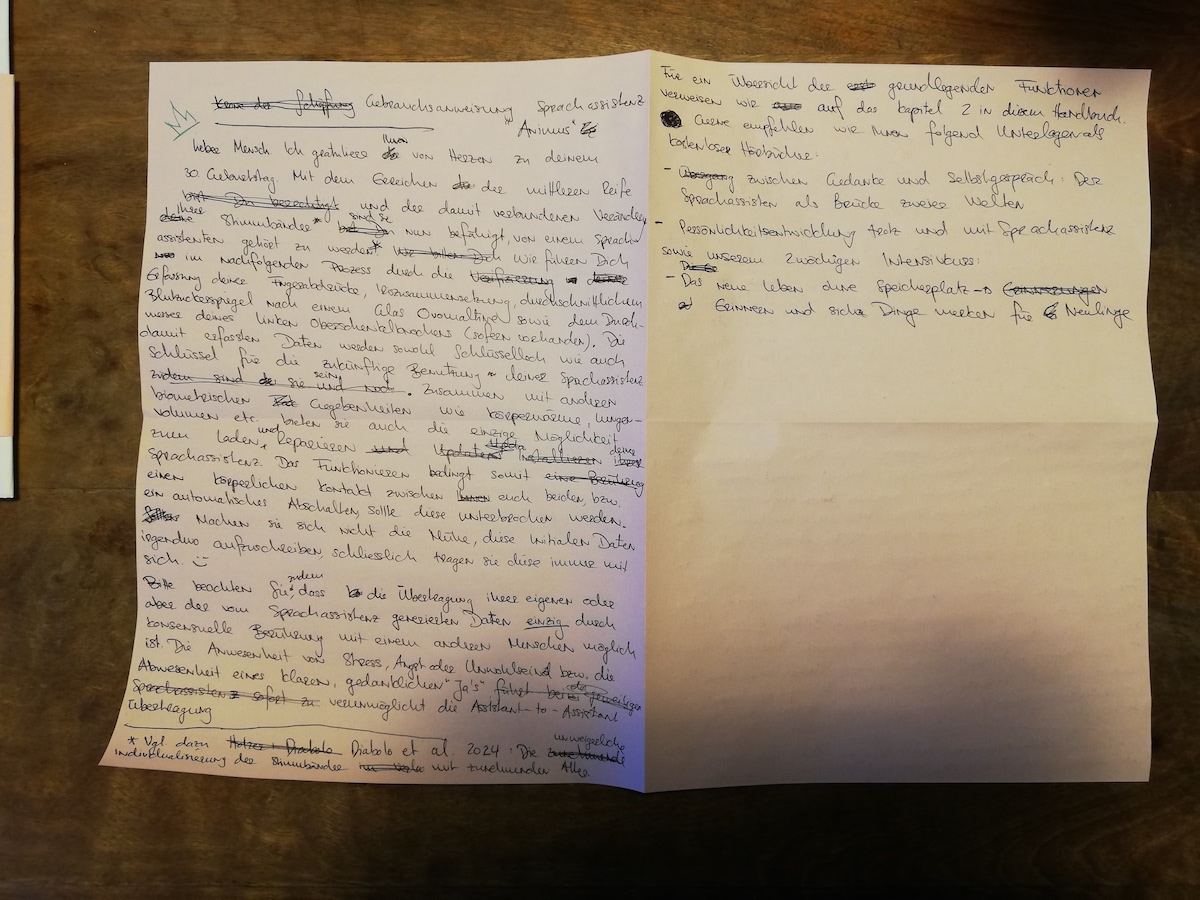 Gebrauchsanweisung Sprachassistenz
"Animus"
Lieber Mensch. Ich gratuliere Ihnen von Herzen zu deinem
30. Geburtstag. Mit dem Erreichen der mittleren Reife
und der damit verbundenen Veränderung
Ihrer Stimmbänder* sind sie nun befähigt, von einem Sprach-
assistenten gehört zu werden*. Wir führen Dich
im nachfolgenden Prozess durch die
Erfassung deiner Fingerabdrücke, durchschnittlichem
Blutzuckerspiegel nach einem Glas Ovomaltine sowie dem Durch-
messer deines linken Oberschenkelknochens (sofern vorhanden). Die
damit erfassten Daten werden sowohl Schlüsselloch wie auch
Schlüssel für die zukünftige Benutzung deiner Sprachassistenz
sein. Zusammen mit anderen
biometrischen Gegebenheiten wie Körperwärme, Lungen-
volumen etc. bieten sie auch die einzige Möglichkeit
zum Laden und Reparieren deiner
Sprachassistenz. Das Funktionieren bedingt somit
einen körperlichen Kontakt zwischen euch beiden, bzw.
ein automatisches Abschalten, sollte diese unterbrochen werden.
Machen sie sich nicht die Mühe, diese Initialen Daten
irgendwo aufzuschreiben, schliesslich tragen sie diese immer mit
sich. :)
Bitte beachten Sie zudem, dass die Übertragung ihrer eigenen oder
aber der vom Sprachassistenz generierten Daten einzig durch
konsensuelle Berührung mit einem anderen Menschen möglich
ist. Die Anwesenheit von Stress, Angst oder Unwohlsein bzw. die
Abwesenheit eines klaren, gedanklichen "Ja's"
verunmöglicht die Assistant-to-Assistant
Übertragung
* Vgl. dazu Diabolo et al. 2024: Die unweigerliche
Individualisierung der Stimmbänder mit zunehmender Alter.
Für ein Übersicht der grundlegenden Funktionen
verweisen wir auf das Kapitel 2 in diesem Handbuch.
Gerne empfehlen wir Ihnen folgend Unterlagen als
kostenloser Hörbücher:
- zwischen Gedanke und Selbstgespräch: Der
Sprachassistent als Brücke zweier Welten
- Persönlichkeitsentwicklung trotz und mit Sprachassistenz
sowie unserem 2wöchigen Intensivkurs:
- Das neue Leben ohne Speicherplatz →
Erinnern und sich Dinge merken für Neulinge